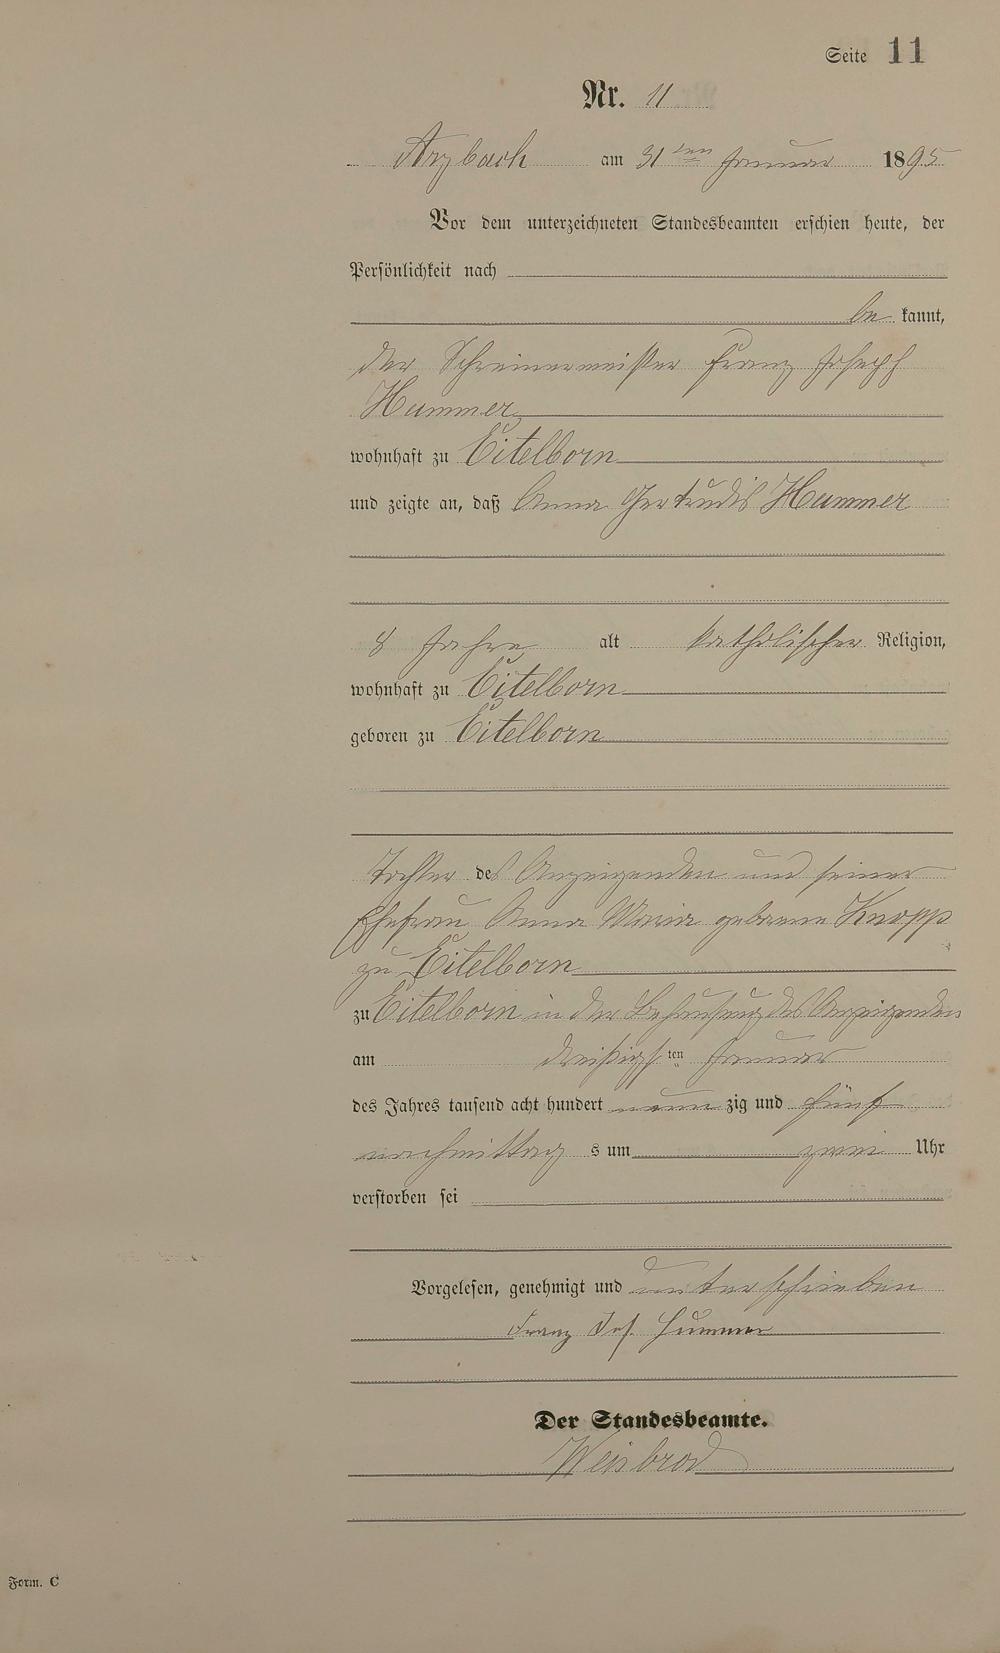 Seite 11
Nr. 11
Arzbach am 31ten Januar 1895
Vor dem unterzeichneten Standesbeamten erschien heute, der
Persönlichkeit nach
be kannt,
der Schreinermeister Franz Joseph
Hummer
wohnhaft zu Eitelborn
und zeigte an, daß Anna Gertrudis Hummer
8 Jahre alt katholischer Religion,
wohnhaft zu Eitelborn
geboren zu Eitelborn
Tochter des Anzeigenden und seiner
Ehefrau Anna Maria geborene Knopp
zu Eitelborn
zu Eitelborn in der Behausung des Anzeigenden
am dreißigsten Januar
des Jahres tausend acht hundert neun zig und fünf
nachmittag s um zwei Uhr
verstorben sei
Vorgelesen, genehmigt und unterschrieben
Franz Jos. Hummer
Der Standesbeamte.
Weisbrod
Form. C